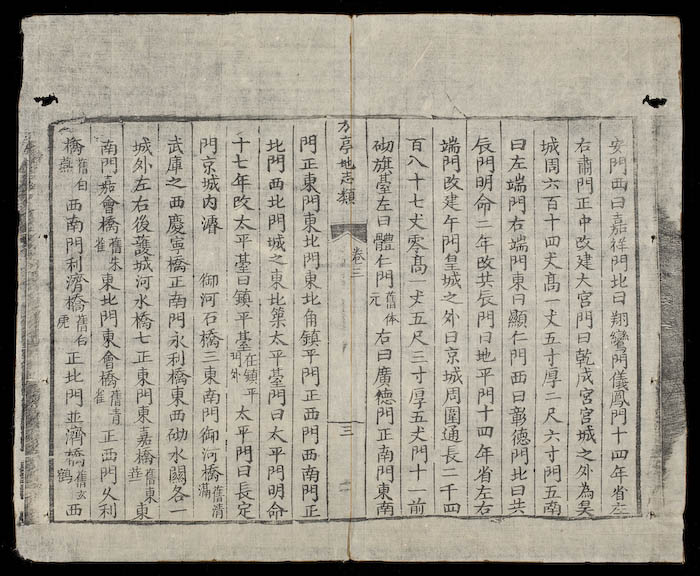 安門西曰嘉祥門北曰翔鸞門儀鳳門十四年省左
右肅門正中改建大宮門曰乾成宮宮城之外為
城周六百十四丈高一丈五寸厚二尺六寸門五南
曰左端門右端門東曰顯仁門西曰彰德門北曰共
辰門明命二年改共辰門曰地平門十四年省左右
端門改建午門皇城之外曰京城周圍通長二千四
百八十七丈零高一丈五尺三寸厚五丈門十一前
砌旗臺左曰體仁門舊体元右曰廣德門正南門東南
方亭地志類 卷三 三
門正東門東北門東北角鎮平門正西門西南門正
北門西北門城之東北築太平臺門曰太平門明命
十七年改太平臺曰鎮平臺在鎮平門外太平門曰長定
門京城內濬 御河石橋三東南門御河橋舊清滿
武庫之西慶寅橋正南門永利橋東西砌水關各一
城外左右後護城河水橋七正東門東嘉橋舊東華東
南門嘉會橋舊朱雀東北門東會橋舊青雀正西門久利
橋舊白燕西南門利濟橋舊白虎正北門並濟橋舊玄鶴西